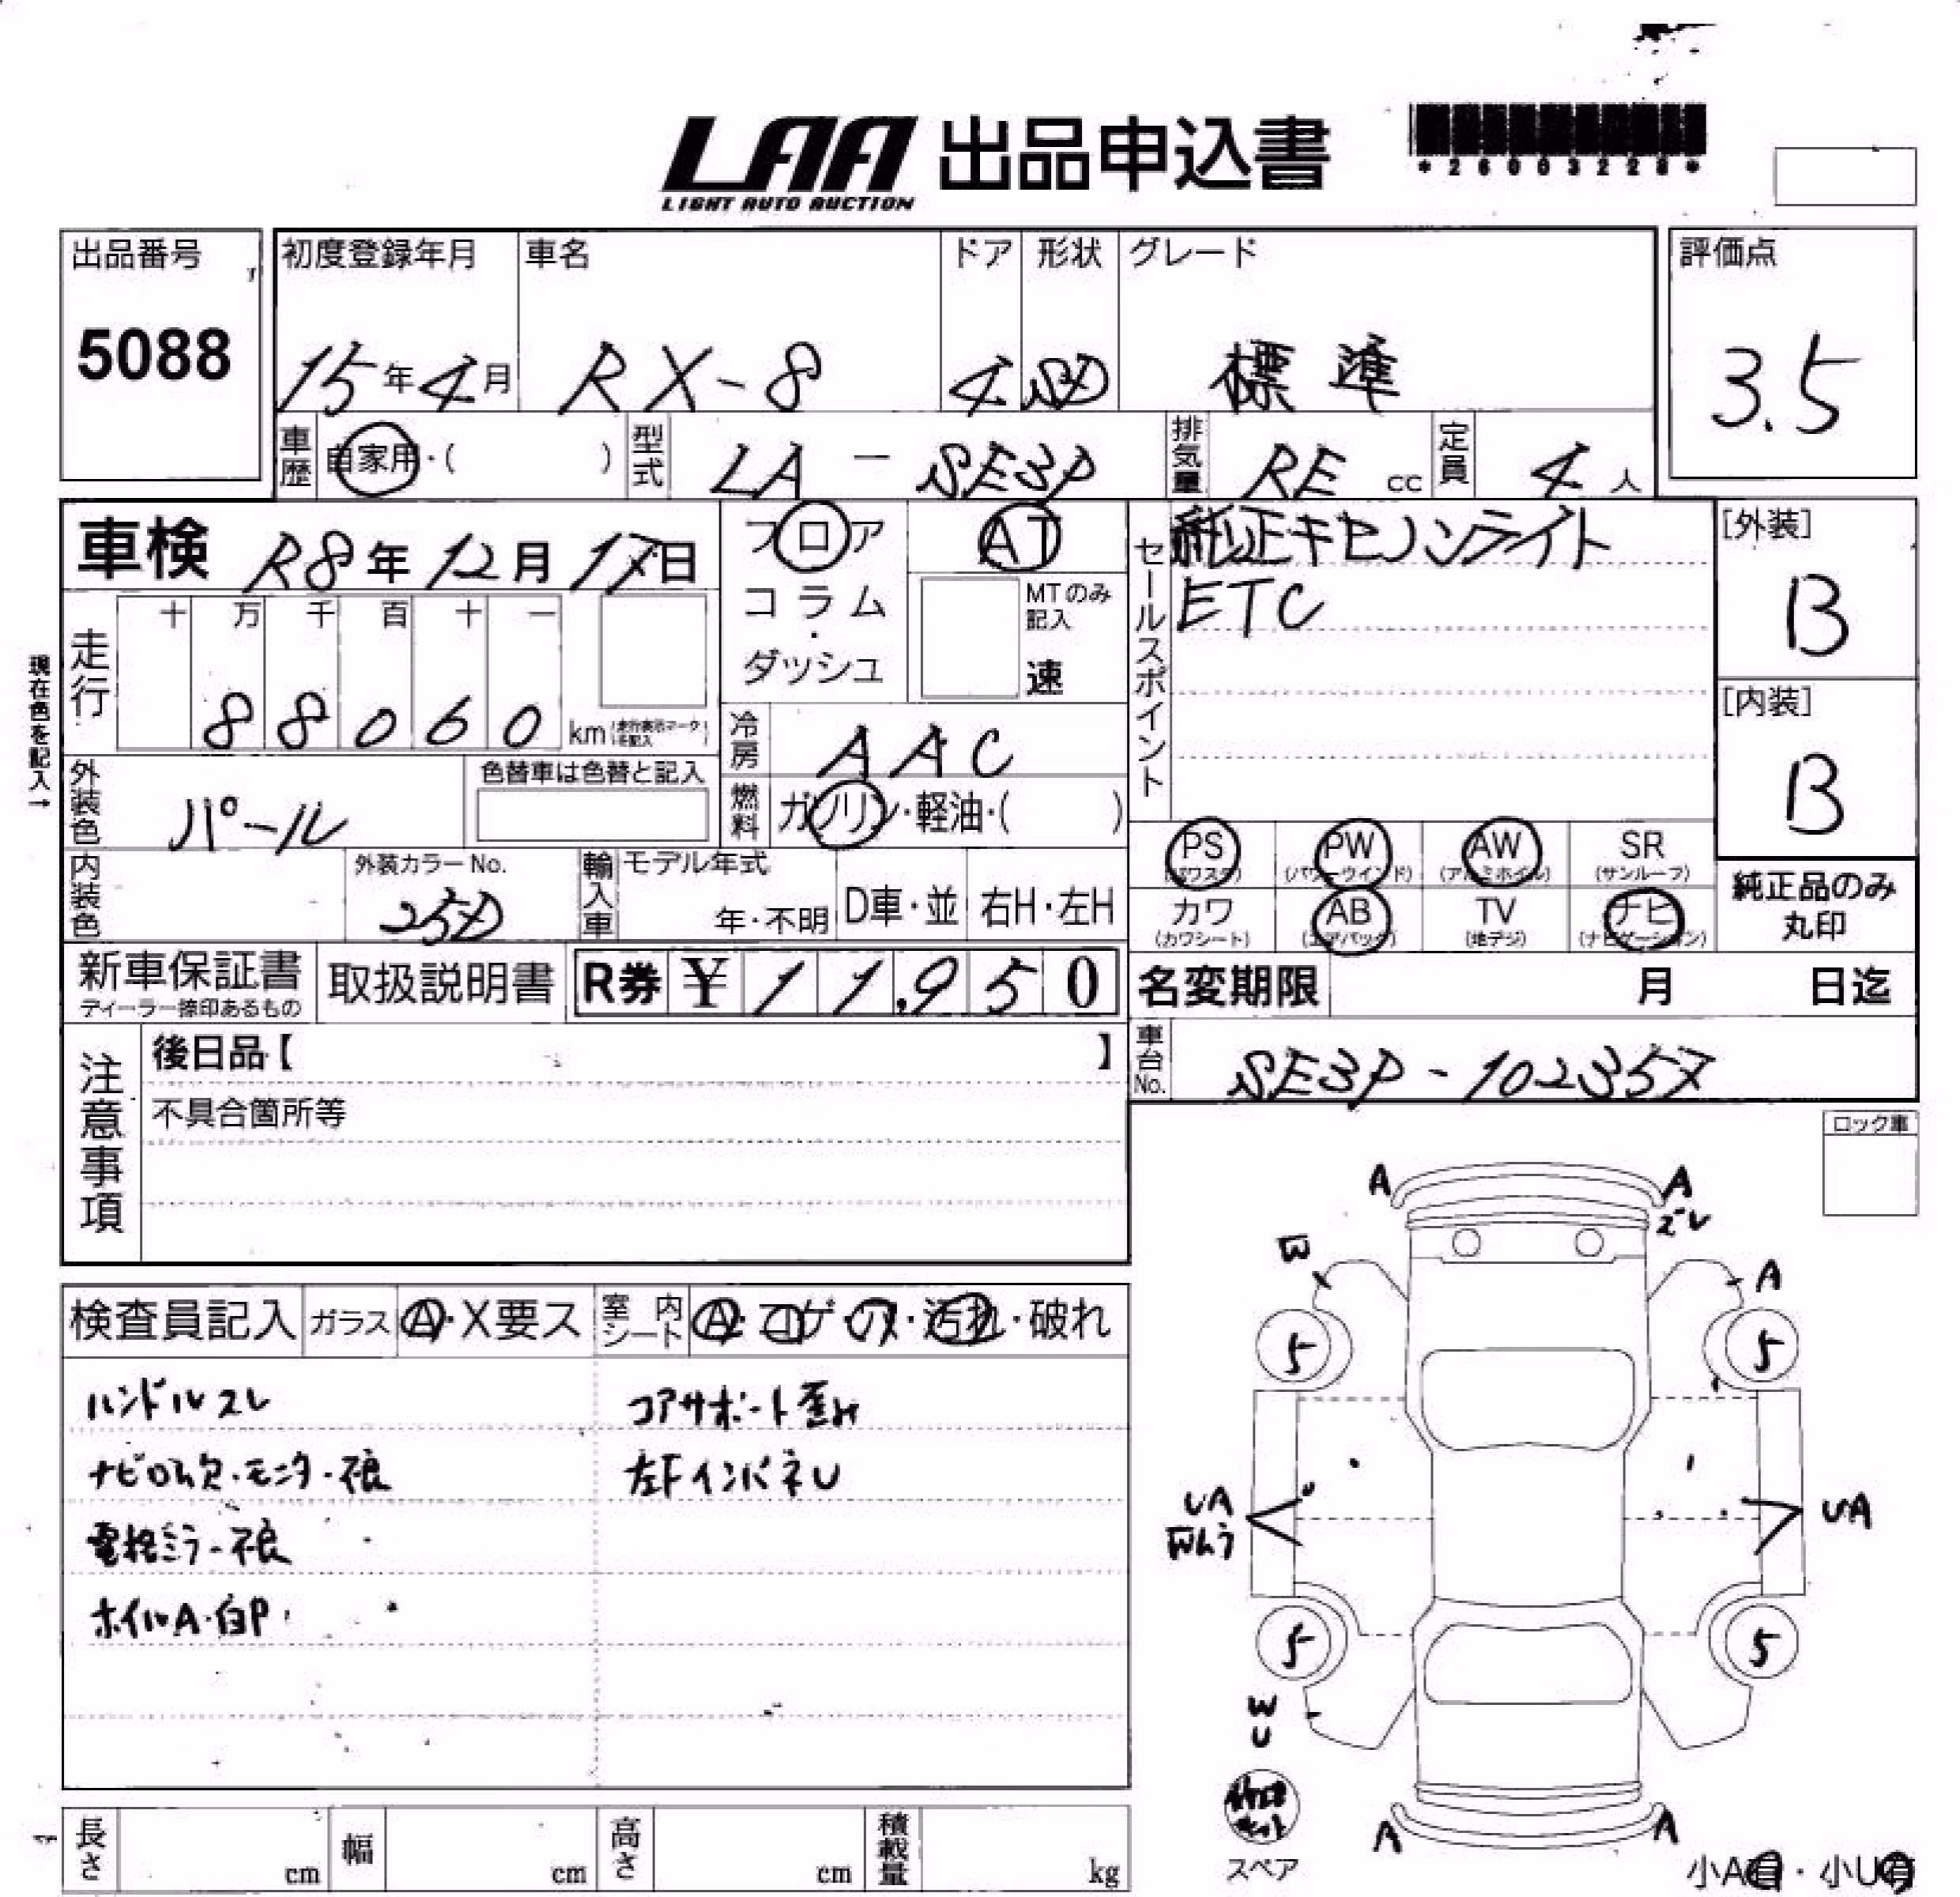 LAA 出品申込書
LIGHT AUTO AUCTION
*26003228*
出品番号
5088
初度登録年月
15年4月
車名
RX-8
ドア
4
形状
SD
グレード
標準
評価点
3.5
車歴 自家用・( )
型式 LA - SE3P
排気量 RE cc
定員 4 人
車検 R8年12月17日
走行
十 万 千 百 十 一
8 8 0 6 0 km
現在色を記入→
フロア
コラム
・
ダッシュ
AT
MTのみ
記入
速
冷房 AAC
燃料 ガソリン・軽油・( )
セールスポイント
純正キセノンライト
ETC
[外装]
B
[内装]
B
外装色 パール
色替車は色替と記入
内装色
外装カラーNo.
25D
輸入車
モデル年式
年・不明
D車・並
右H・左H
PS
(パワステ)
PW
(パワーウインド)
AW
(アルミホイル)
SR
(サンルーフ)
カワ
(カワシート)
AB
(エアバッグ)
TV
(地デジ)
ナビ
(ナビゲーション)
純正品のみ
丸印
新車保証書
ディーラー捺印あるもの
取扱説明書
R券 ¥ 11,950
名変期限 月 日迄
車台No. SE3P-102357
注意事項
後日品【 】
不具合箇所等
ロック車
検査員記入
ガラス A・X要ス
室内シート A・コゲ・穴・汚れ・破れ
ハンドルスレ
コアサポート歪み
ナビロム欠・モニター不良
左FインパネU
電格ミラー不良
ホイルA・白P
A
A
ズレ
W
A
5
5
UA
UA
5
5
W
U
スペア
A
A
小A有・小U有
長さ cm
幅 cm
高さ cm
積載量 kg